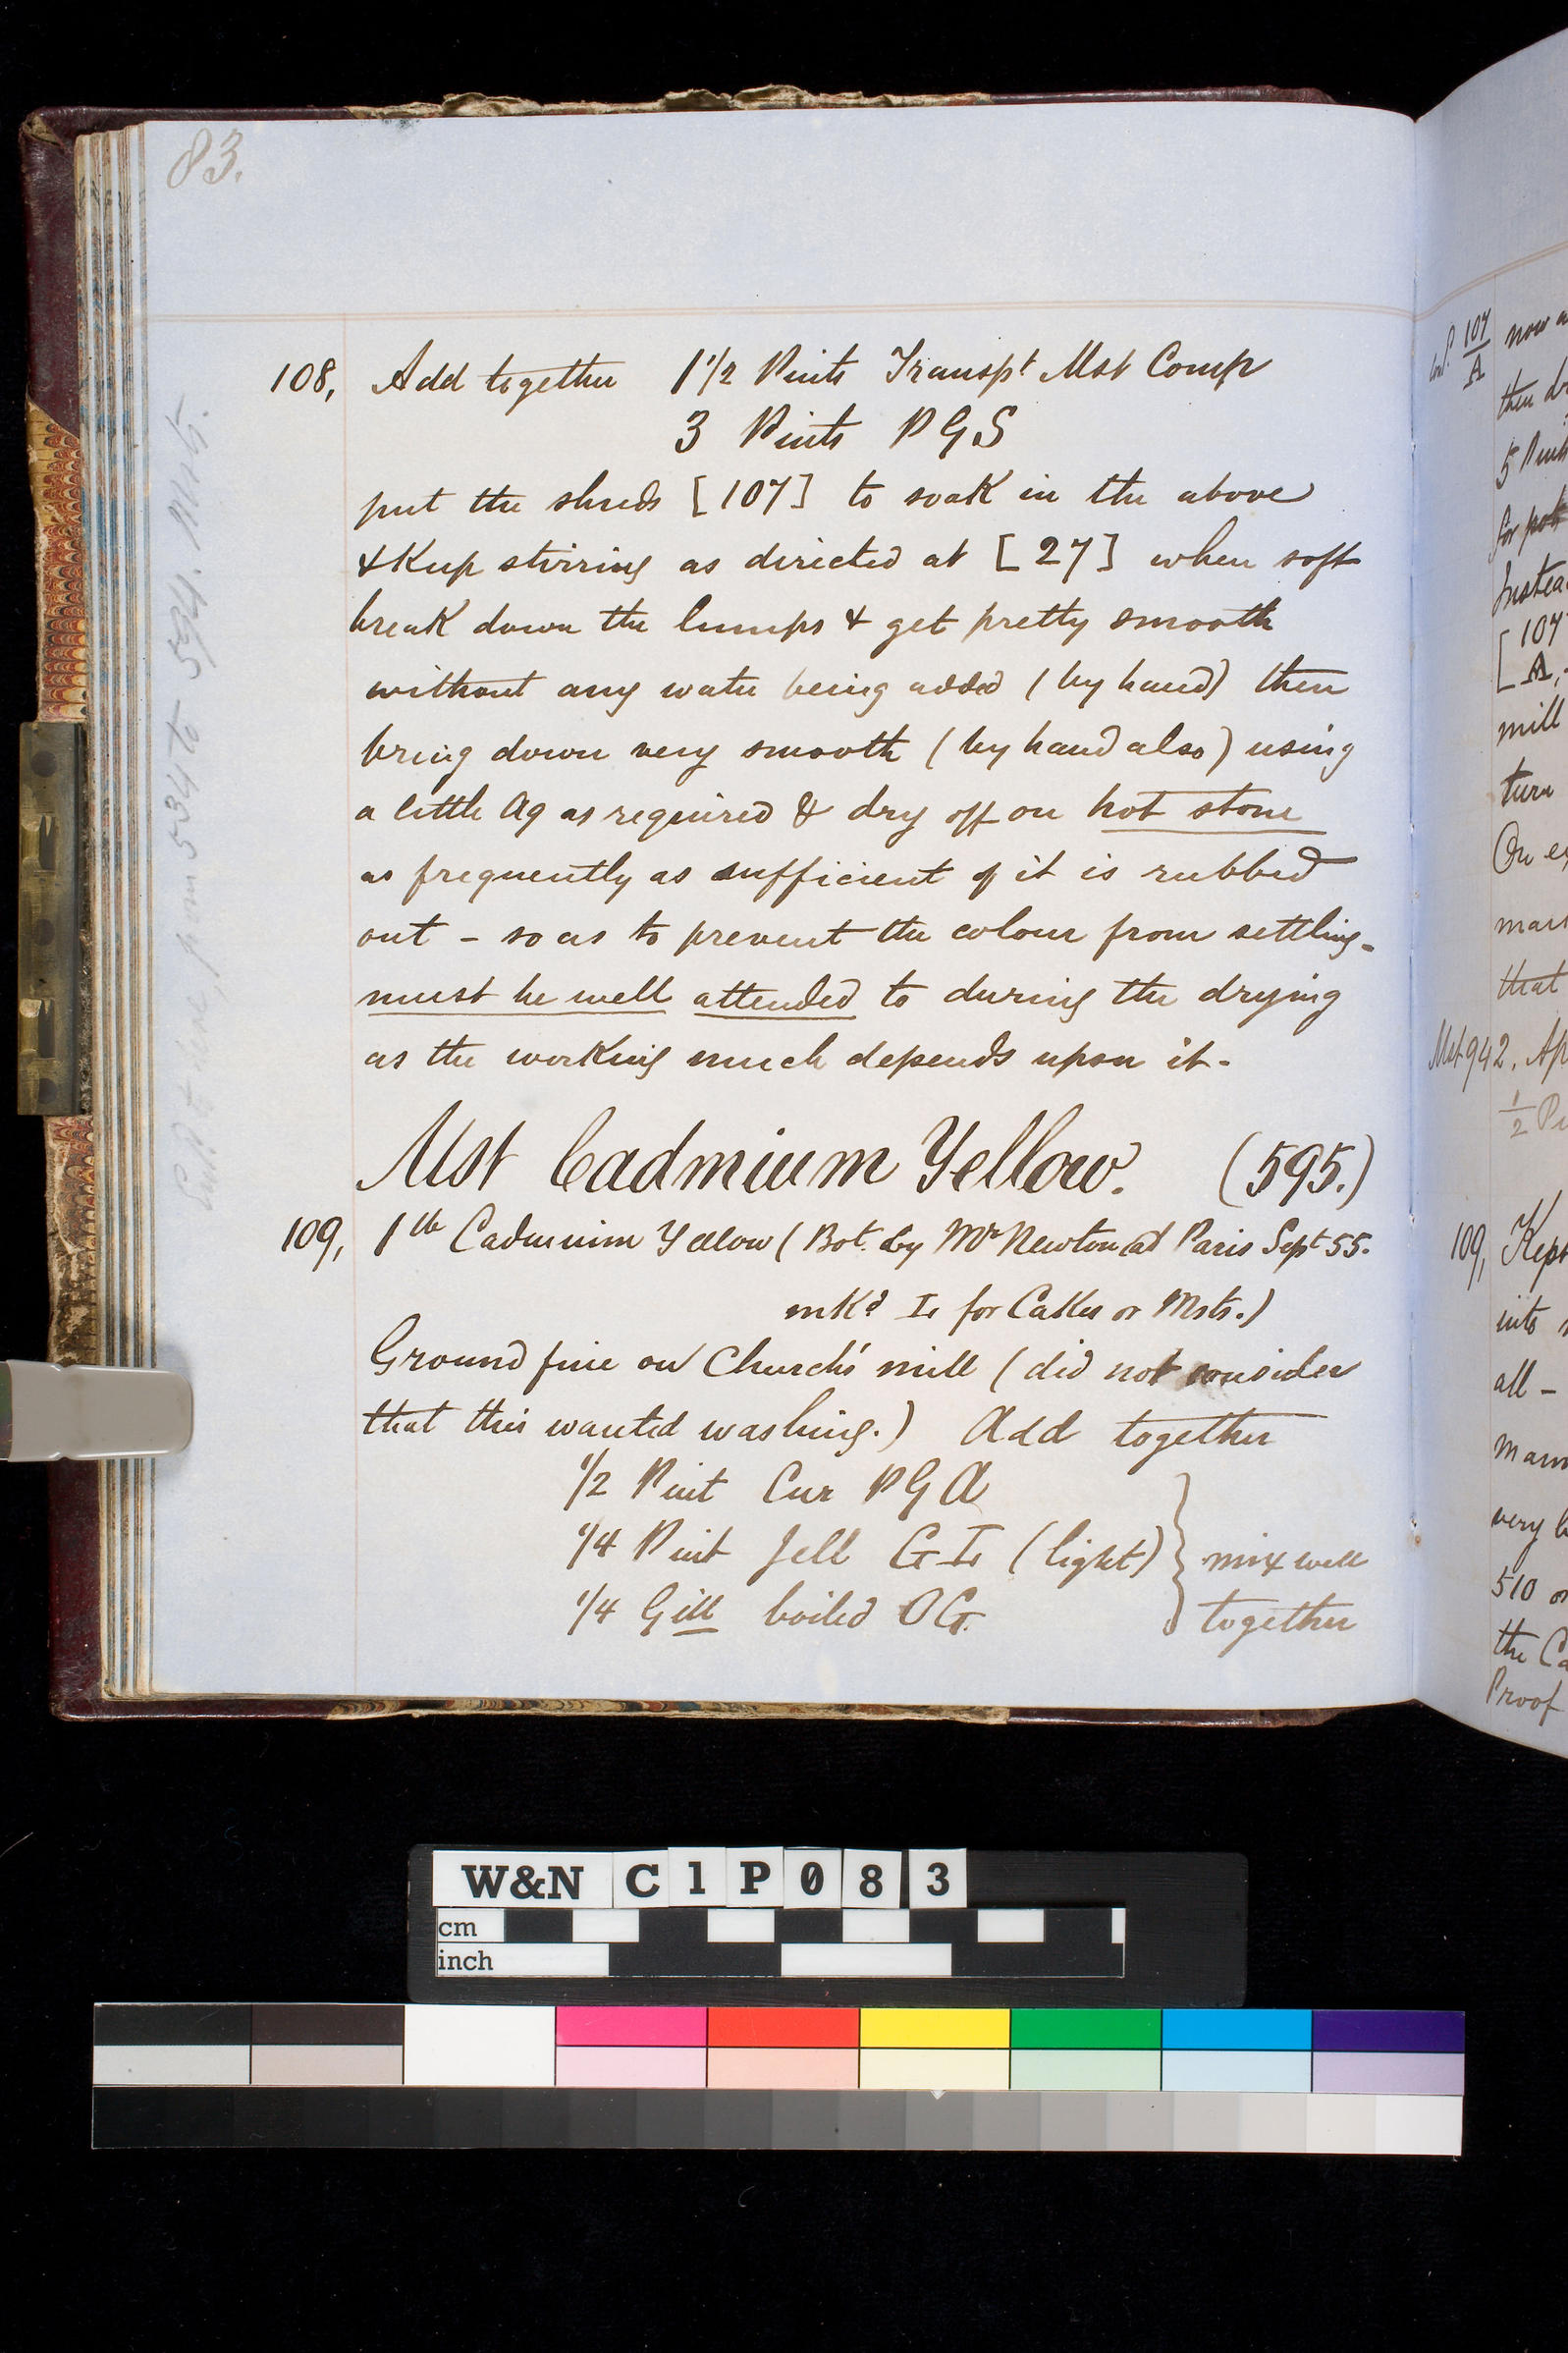 83.
108, Add together 1 1/2 Pints Transpt Mst Comp
3 Pints P G S
put the shreds [107] to soak in the above
& Keep stirring as directed at [27] when soft
break down the lumps & get pretty smooth
without any water being added (by hand) then
bring down very smooth (by hand also) using
a little Aq as required & dry off on hot stone
as frequently as sufficient of it is rubbed
out - so as to prevent the colour from settling -
must be well attended to during the drying
as the working much depends upon it -
Mst Cadmium Yellow. (595.)
109, 1 lb Cadmium Yellow (Bot. by Mr Newton at Paris Sept 55.
mKd for Cakes or Msts.)
Ground fine on Church's mill (did not consider
that this wanted washing.) Add together
1/2 Pint Cur P G A
1/4 Pint Jell (light) } mix well
1/4 Gill boiled O G. together
from 534 to 594. Msts.
107
A
now
then
5
for
Instea
[107
A
mill
turn
On
mars
that
Mst 942.
1/2
109, Kept
into
all -
very
510
the
Proof
W&N C 1 P 0 8 3
cm
inch